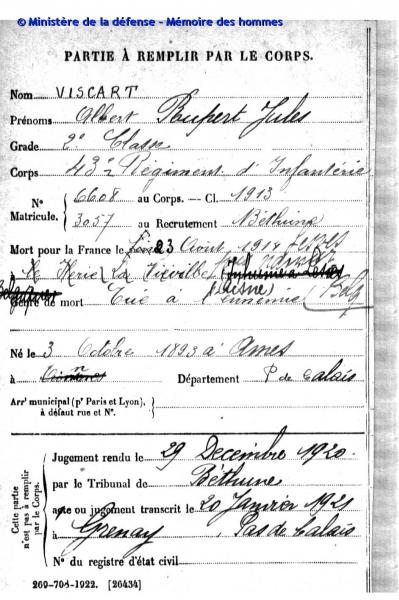 © Ministère de la défense - Mémoire des hommes
PARTIE À REMPLIR PAR LE CORPS.
Nom VISCART
Prénoms Albert Rupert Jules
Grade 2e Classe
Corps 43e Régiment d'Infanterie
N° Matricule. { 6608 au Corps. — Cl. 1913
3057 au Recrutement Béthune
Mort pour la France le 23 Août 1914
le Herie La Viéville (Aisne)
Genre de mort Tué à l'ennemi
Né le 3 Octobre 1893 à Ames
à Département P de Calais
Arrt municipal (pr Paris et Lyon), à défaut rue et N°.
Cette partie n'est pas à remplir par le Corps.
Jugement rendu le 29 Décembre 1920
par le Tribunal de Béthune
acte ou jugement transcrit le 20 Janvier 1921
à Grenay, Pas de Calais
N° du registre d'état civil
269-708-1922. [26434]